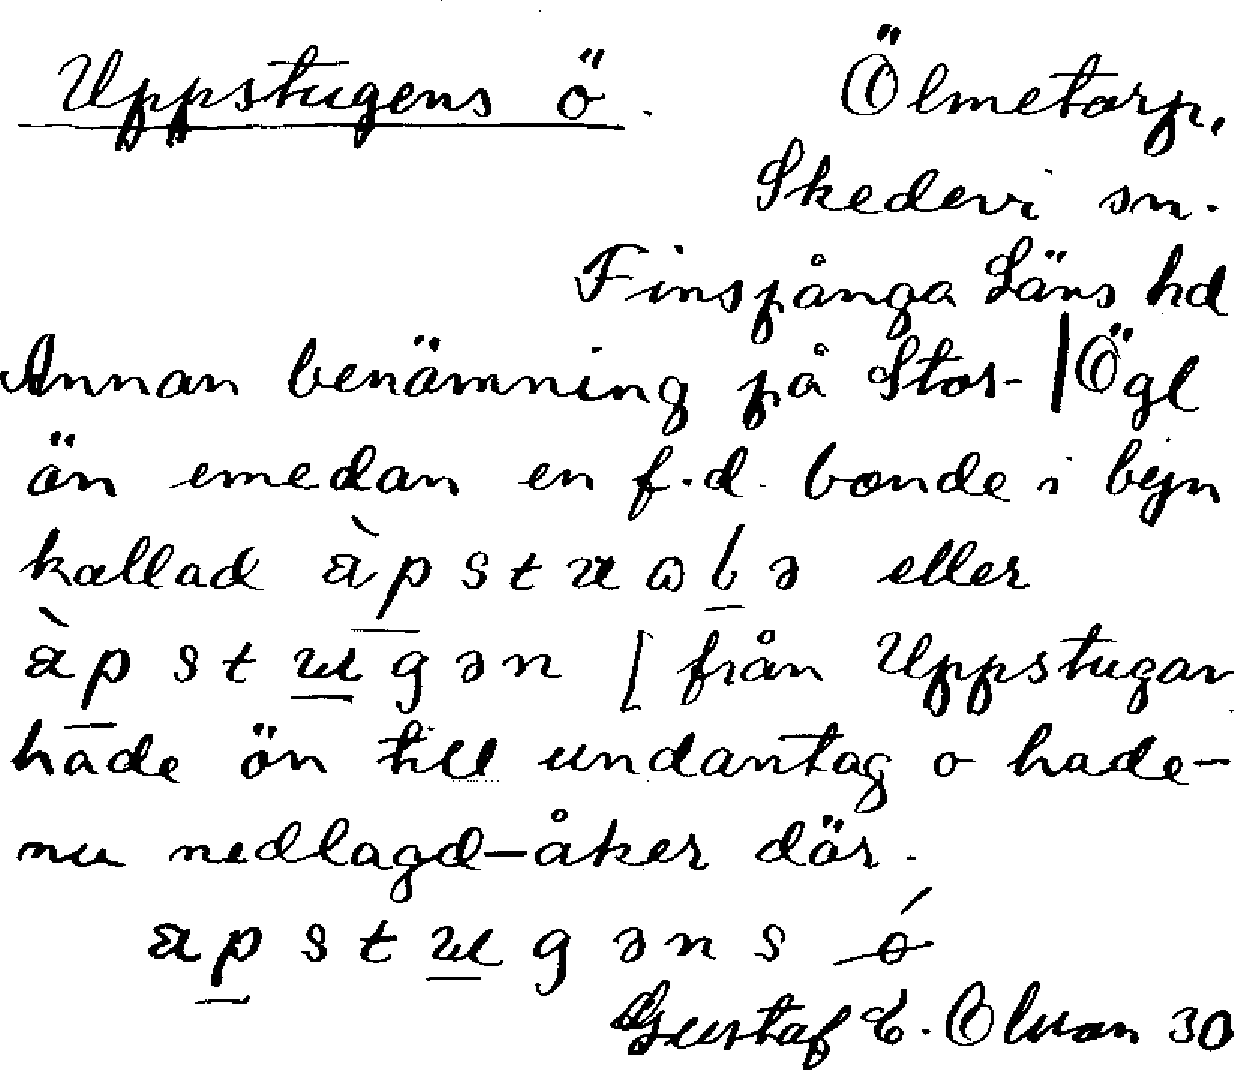 Uppstugens ö. Ölmetorp,
Skedevi sn.
Finspånga Läns hd
Annan benämning på Stor- | Ögl
än emedan en f.d. bonde i byn
kallad
eller
[från Uppstugan
hade ön till undantag o hade–
nu nedlagd–åker där.
Gustaf E. Olson 30